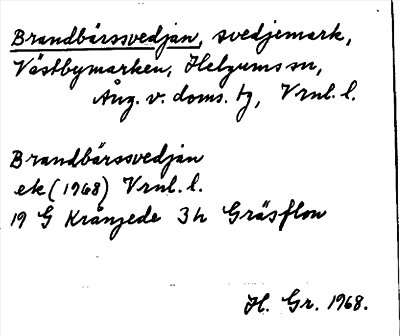 Brandbärssvedjan, svedjemark,
Västbymarken, Helgums sn,
Ång. v. doms. tg, Vrnl. l.
Brandbärssvedjan
ek (1968) Vrnl. l.
19 G Krångede 3h Gräsflon
H. Gr. 1968.